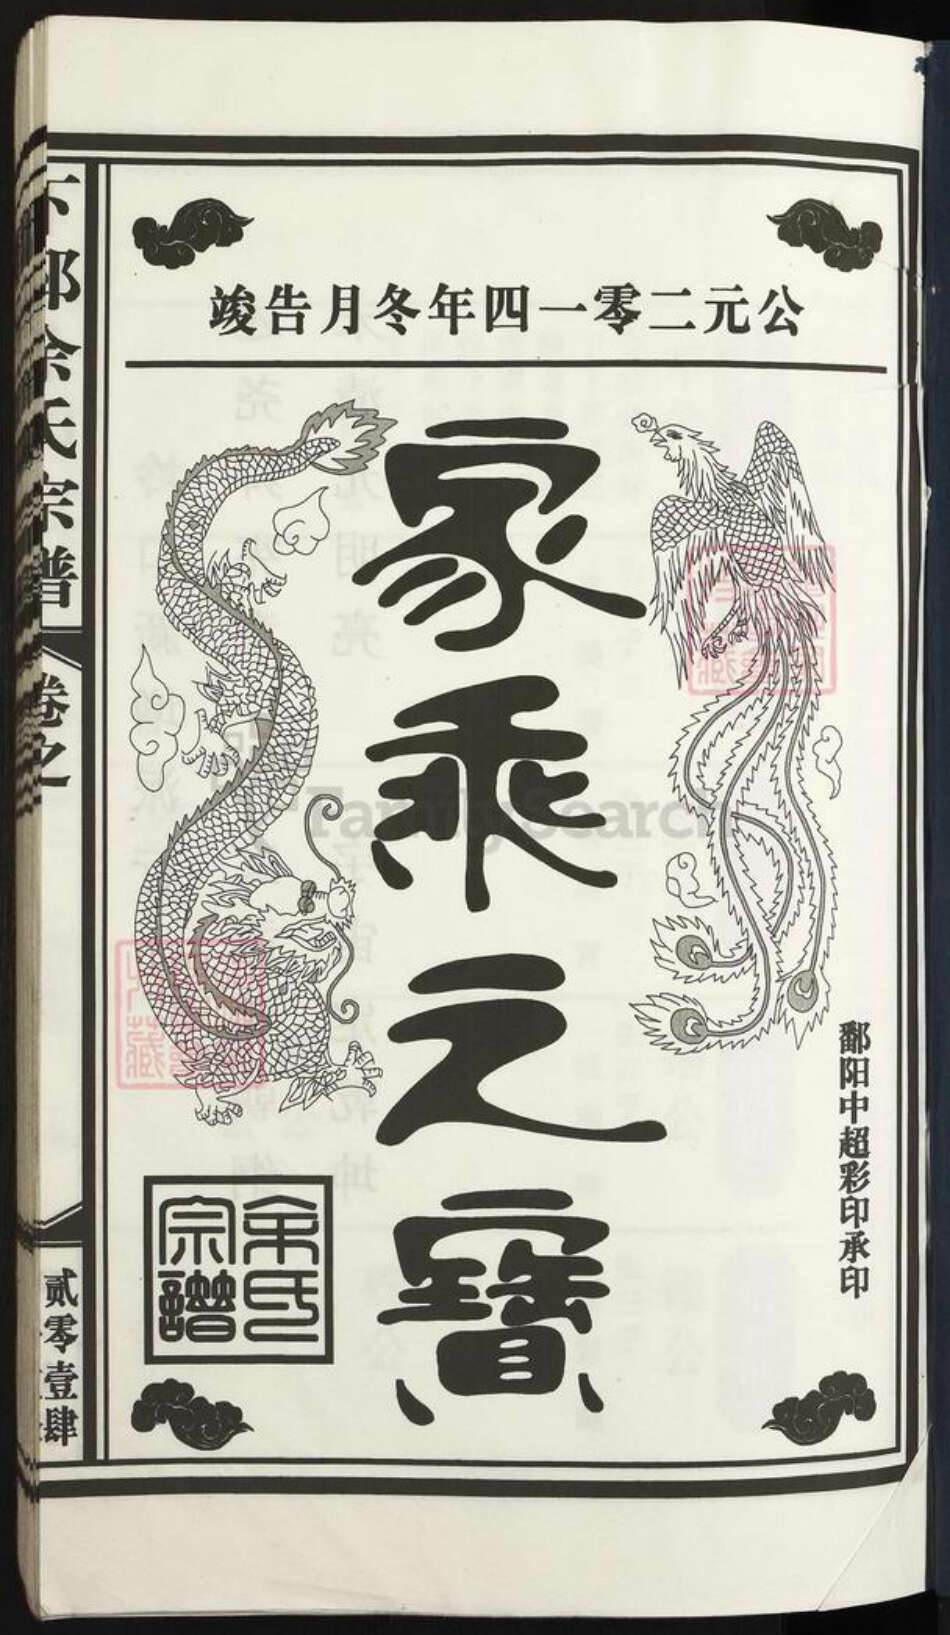 公元二零一四年冬月告竣
家乘之寶
鄱阳中超彩印承印
余氏
宗譜
下邳余氏宗譜
卷之
贰零壹肆
FamilySearch